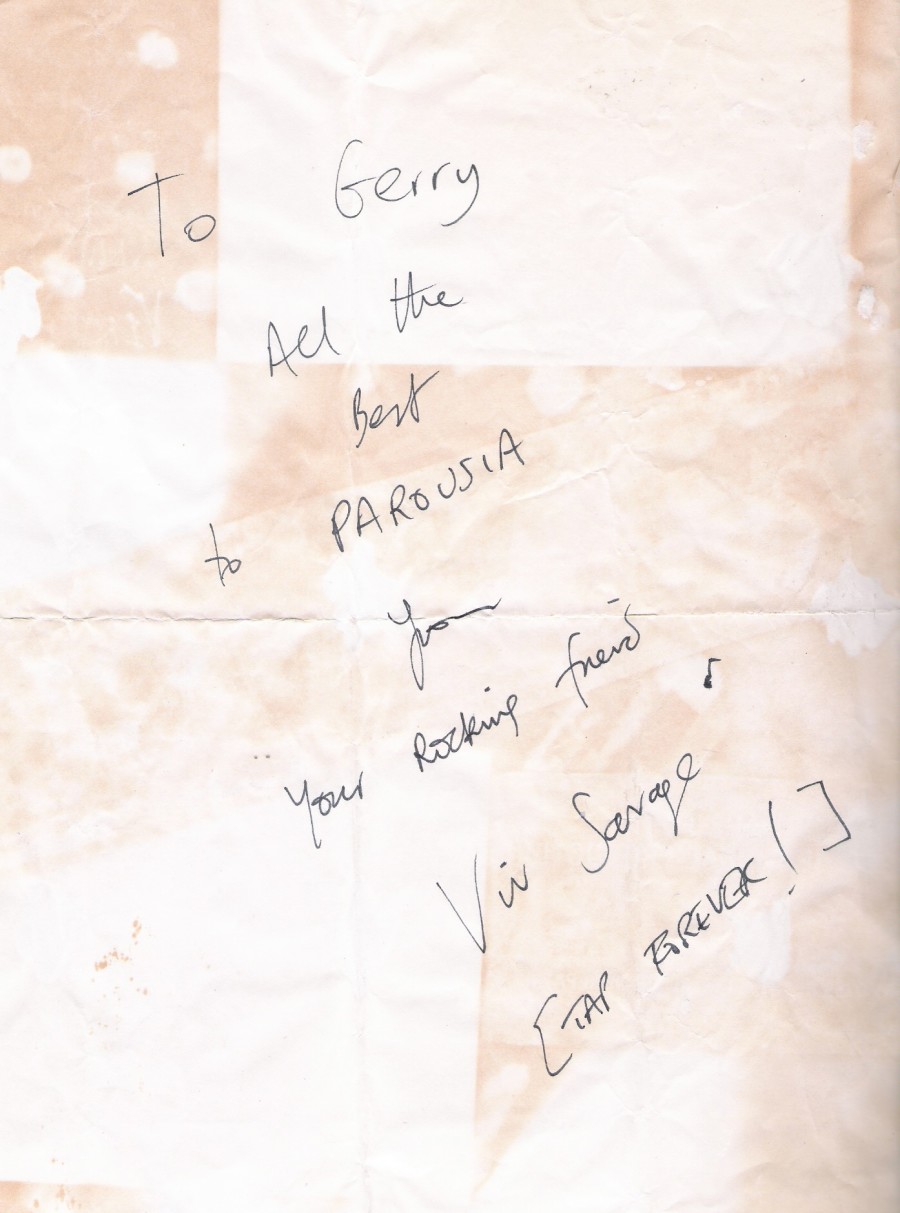 To Gerry
All the
Best
to PAROUSIA
Your Rocking friend
Viv Savage
[TAP FOREVER!]